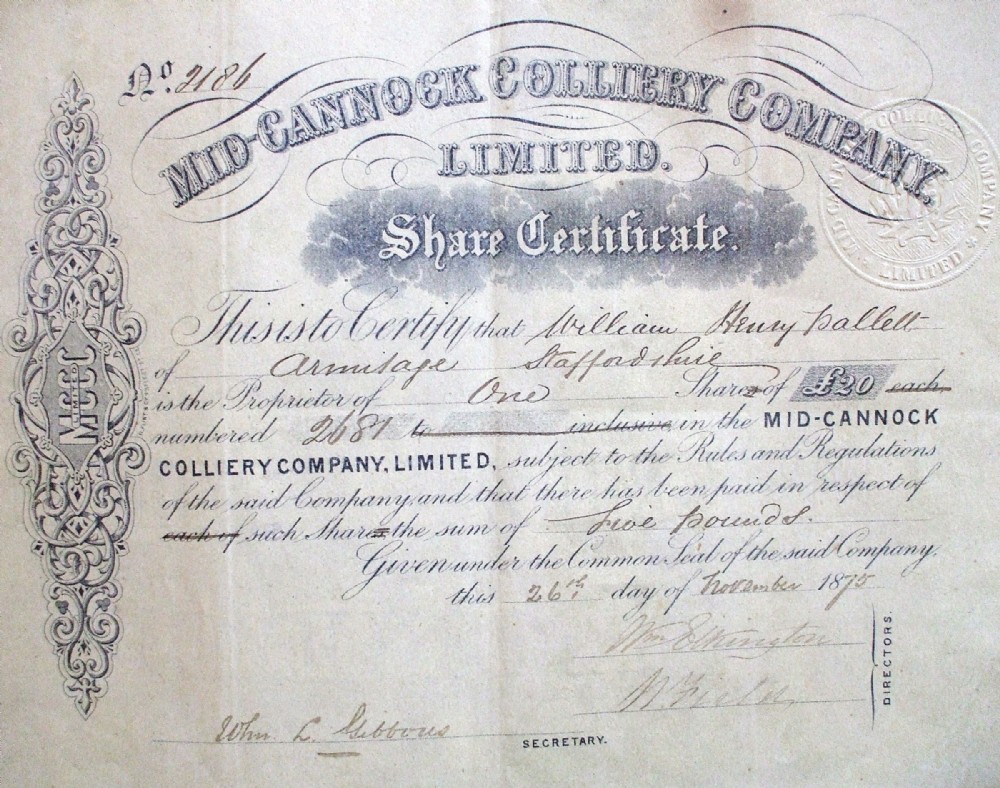 No. 2186
MID-CANNOCK COLLIERY COMPANY,
LIMITED.
MID CANNOCK COLLIERY COMPANY LIMITED
Share Certificate.
This is to Certify that William Henry Pallett
of Armitage Staffordshire
is the Proprietor of One Shares of £20 each,
numbered 2681 to inclusive in the MID-CANNOCK
COLLIERY COMPANY, LIMITED, subject to the Rules and Regulations
of the said Company, and that there has been paid in respect of
each of such Shares the sum of Five pounds.
Given under the Common Seal of the said Company,
this 26th day of November 1875
Wm Elkington
DIRECTORS.
Wm. L. Gibbons
SECRETARY.
MCCC
LIMITED